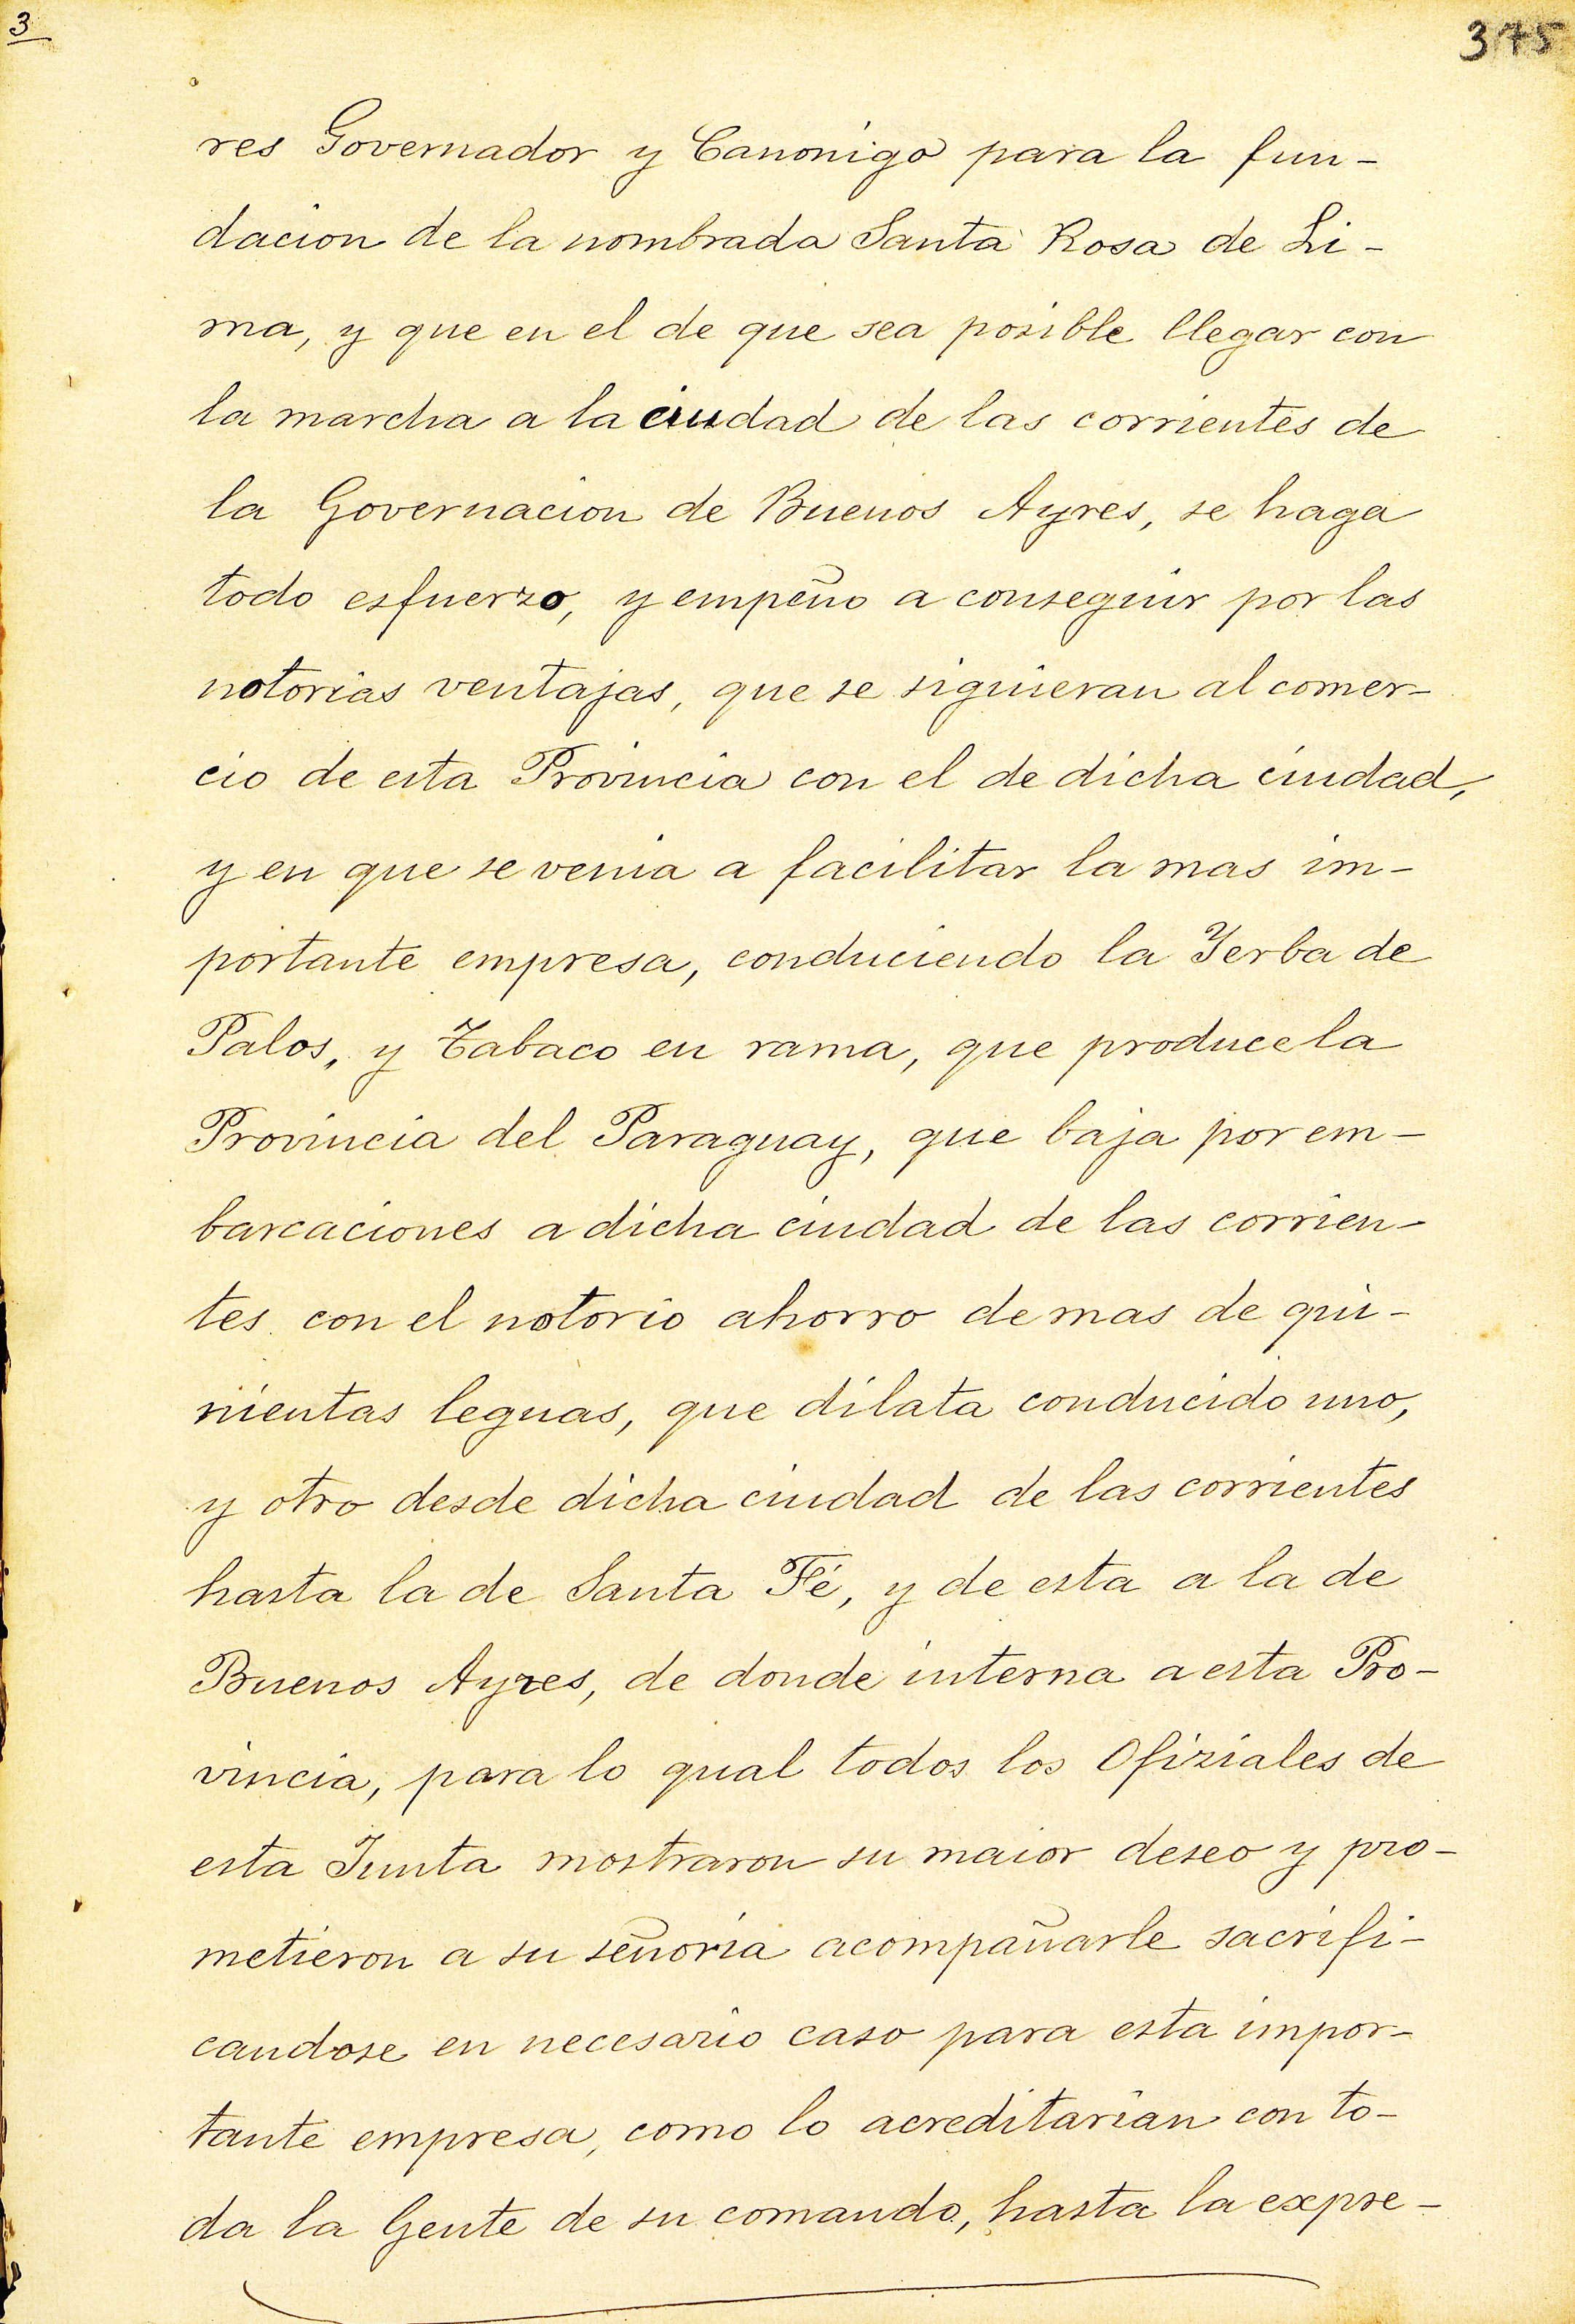 3
375
res Governador y Canonigo para la fun-
dacion de la nombrada Santa Rosa de Li-
ma, y que en el de que sea posible llegar con
la marcha a la ciudad de las corrientes de
la Governacion de Buenos Ayres, se haga
todo esfuerzo, y empeño a conseguir por las
notorias ventajas, que se siguieran al comer-
cio de esta Provincia con el de dicha ciudad,
y en que se venia a facilitar la mas im-
portante empresa, conduciendo la Yerba de
Palos, y Tabaco en rama, que produce la
Provincia del Paraguay, que baja por em-
barcaciones a dicha ciudad de las corrien-
tes con el notorio ahorro de mas de qui-
nientas leguas, que dilata conducido uno,
y otro desde dicha ciudad de las corrientes
hasta la de Santa Fé, y de esta a la de
Buenos Ayres, de donde interna a esta Pro-
vincia, para lo qual todos los Ofiziales de
esta Junta mostraron su maior deseo y pro-
metieron a su señoria acompañarle sacrifi-
candose en necesario caso para esta impor-
tante empresa, como lo acreditarian con to-
da la Gente de su comando, hasta la expre-